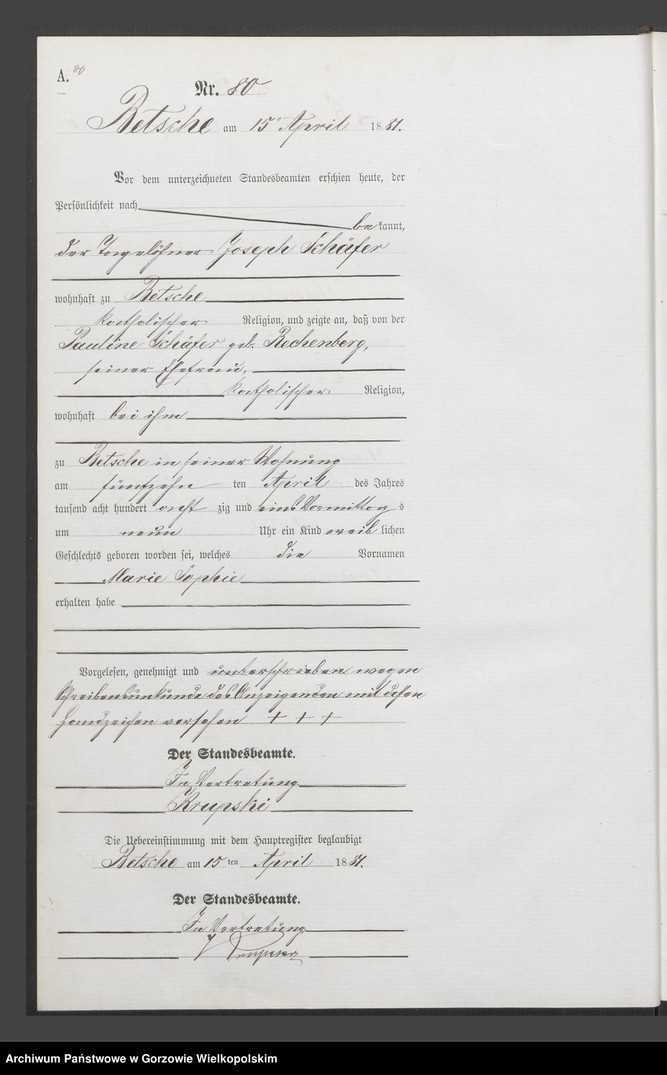 A. 80
Nr. 80
Betsche am 15 April 1881.
Vor dem unterzeichneten Standesbeamten erschien heute, der
Persönlichkeit nach
be kannt,
der Tagelöhner Joseph Schäfer
wohnhaft zu Betsche
katholischer Religion, und zeigte an, daß von der
Pauline Schäfer geb. Rechenberg,
seiner Ehefrau,
katholischer Religion,
wohnhaft bei ihm
zu Betsche in seiner Wohnung
am fünfzehn ten April des Jahres
tausend acht hundert acht zig und eins Vormittag s
um neun Uhr ein Kind weib lichen
Geschlechts geboren worden sei, welches die Vornamen
Marie Sophie
erhalten habe
Vorgelesen, genehmigt und unterschrieben wegen
Schreibensunkunde des Anzeigenden mit dessen
Handzeichen versehen + + +
Der Standesbeamte.
In Vertretung
Krupski
Die Uebereinstimmung mit dem Hauptregister beglaubigt
Betsche am 15 ten April 1881.
Der Standesbeamte.
In Vertretung
Archiwum Państwowe w Gorzowie Wielkopolskim